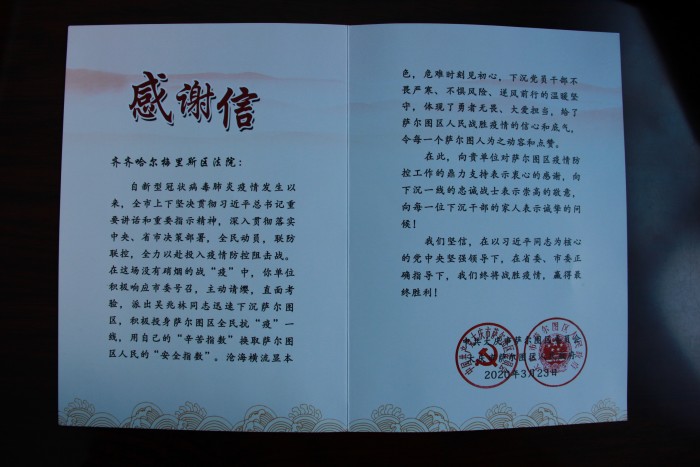 感谢信
齐齐哈尔梅里斯区法院：
自新型冠状病毒肺炎疫情发生以
来，全市上下坚决贯彻习近平总书记重
要讲话和重要指示精神，深入贯彻落实
中央、省市决策部署，全民动员，联防
联控，全力以赴投入疫情防控阻击战。
在这场没有硝烟的战“疫”中，你单位
积极响应市委号召，主动请缨，直面考
验，派出吴兆林同志迅速下沉萨尔图
区，积极投身萨尔图区全民抗“疫”一
线，用自己的“辛苦指数”换取萨尔图
区人民的“安全指数”。沧海横流显本
色，危难时刻见初心，下沉党员干部不
畏严寒、不惧风险、逆风前行的温暖坚
守，体现了勇者无畏、大爱担当，给了
萨尔图区人民战胜疫情的信心和底气，
令每一个萨尔图人为之动容和点赞。
在此，向贵单位对萨尔图区疫情防
控工作的鼎力支持表示衷心的感谢，向
下沉一线的忠诚战士表示崇高的敬意，
向每一位下沉干部的家人表示诚挚的问
候！
我们坚信，在以习近平同志为核心
的党中央坚强领导下，在省委、市委正
确指导下，我们终将战胜疫情，赢得最
终胜利！
2020年3月23日